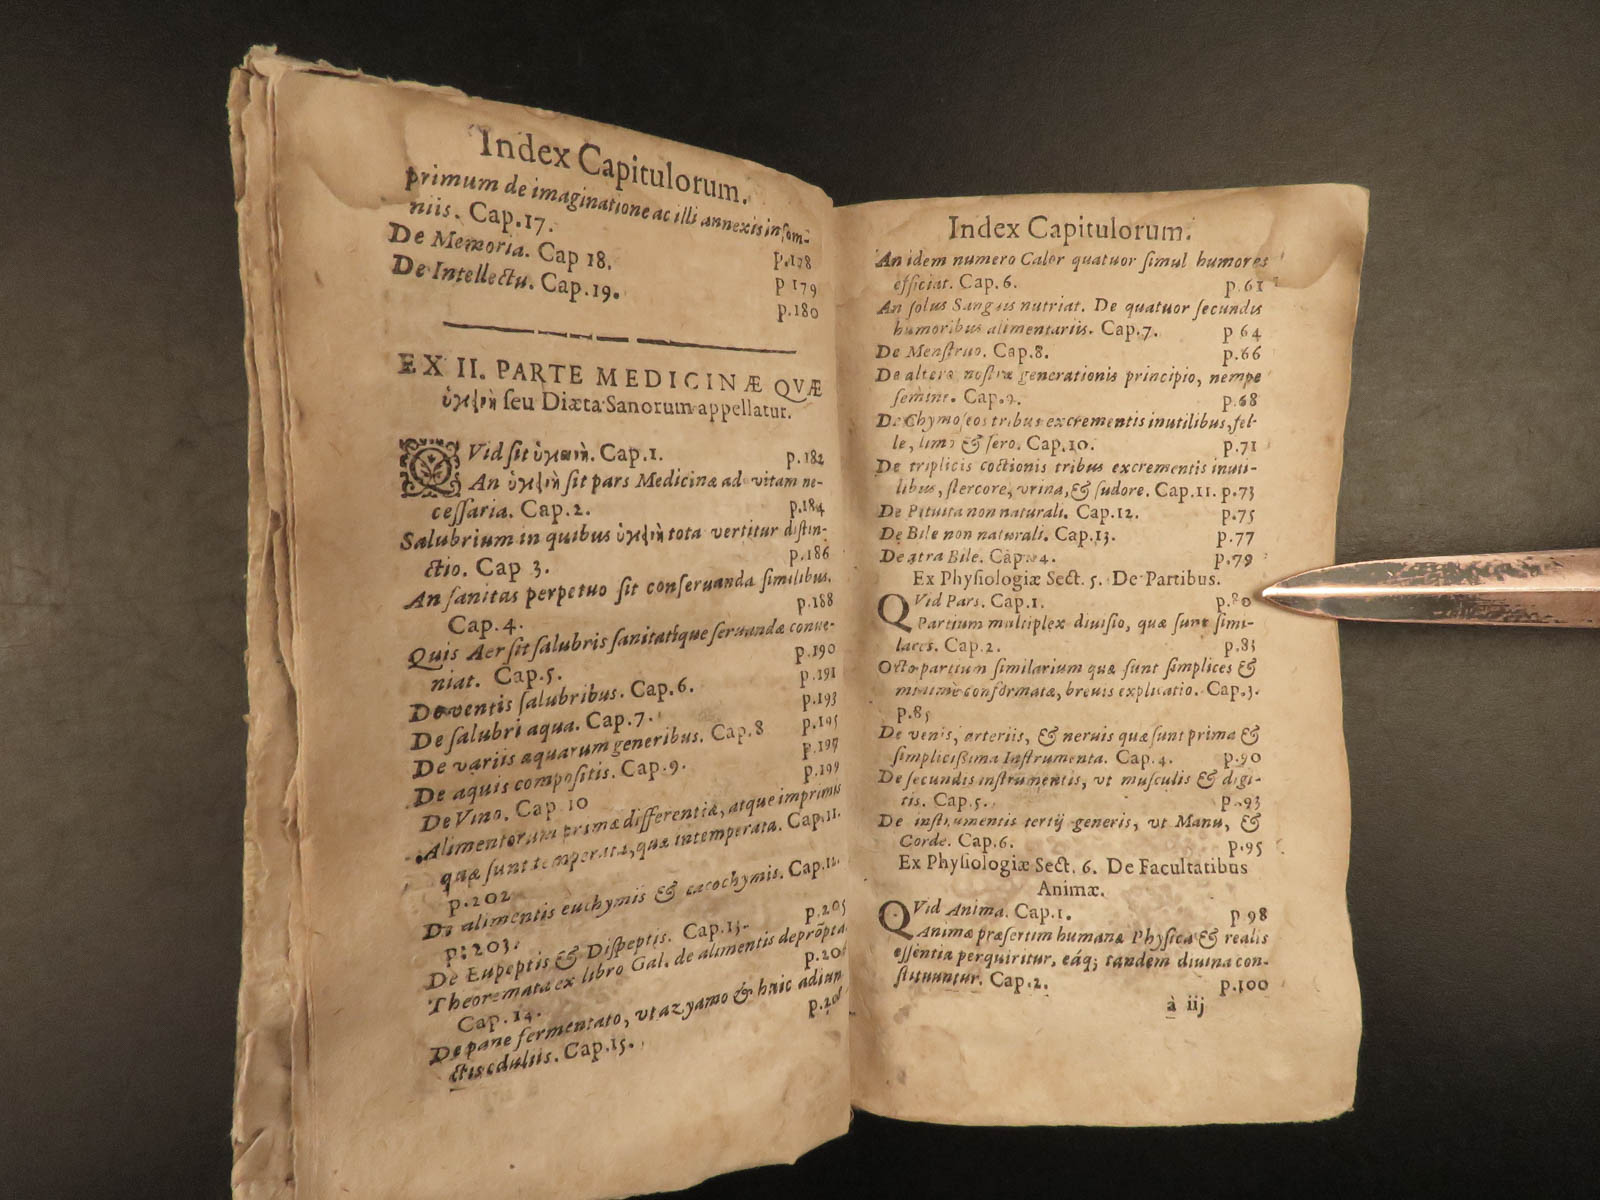 Index Capitulorum.
primum de imaginatione ac illi annexis insom-
niis. Cap.17. p.178
De Memoria. Cap 18. p 179
De Intellectu. Cap.19. p.180
EX II. PARTE MEDICINÆ QVÆ
ὑγιεινὴ ſeu Diæta Sanorum appellatur.
QVid ſit ὑγιεινὴ. Cap.1. p.182
An ὑγιεινὴ ſit pars Medicinæ ad vitam ne-
ceſſaria. Cap.2. p.184
Salubrium in quibus ὑγιεινὴ tota vertitur diſtin-
ctio. Cap 3. p.186
An ſanitas perpetuo ſit conſeruanda ſimilibus.
Cap.4. p.188
Quis Aer ſit ſalubris ſanitatique ſeruandæ conue-
niat. Cap.5. p.190
De ventis ſalubribus. Cap.6. p.191
De ſalubri aqua. Cap.7. p.193
De variis aquarum generibus. Cap.8 p.195
De aquis compoſitis. Cap.9. p.197
De Vino. Cap 10 p.199
Alimentorum primæ differentiæ, atque imprimis
quæ ſunt temperata, quæ intemperata. Cap.11.
p.202
De alimentis euchymis & cacochymis. Cap.12.
p.203.
De Eupeptis & Diſpeptis. Cap.13. p.205
Theoremata ex libro Gal. de alimentis deprōpta
Cap.14.
De pane fermentato, vt azymo & huic adiun
ctis eduliis. Cap.15.
Index Capitulorum.
An idem numero Calor quatuor ſimul humores
efficiat. Cap.6. p.61
An ſolus Sanguis nutriat. De quatuor ſecundis
humoribus alimentariis. Cap.7. p 64
De Menſtruo. Cap.8. p.66
De altero noſtræ generationis principio, nempe
ſemine. Cap.9. p.68
De Chymoſeos tribus excrementis inutilibus, fel-
le, limo & ſero. Cap.10. p.71
De triplicis coctionis tribus excrementis inuti-
libus, ſtercore, vrina, & ſudore. Cap.11. p.73
De Pituita non naturali. Cap.12. p.75
De Bile non naturali. Cap.13. p.77
De atra Bile. Cap. 4. p.79
Ex Phyſiologiæ Sect. 5. De Partibus.
QVid Pars. Cap.1. p.80
Partium multiplex diuiſio, quæ ſunt ſimi-
lares. Cap.2. p.83
Octo partium ſimilarium quæ ſunt ſimplices &
minime conformatæ, breuis explicatio. Cap.3.
p.85
De venis, arteriis, & neruis quæ ſunt prima &
ſimpliciſſima Inſtrumenta. Cap.4. p.90
De ſecundis inſtrumentis, vt muſculis & digi-
tis. Cap.5. p.93
De inſtrumentis tertij generis, vt Manu, &
Corde. Cap.6. p.95
Ex Phyſiologiæ Sect. 6. De Facultatibus
Animæ.
QVid Anima. Cap.1. p 98
Animæ præſertim humanæ Phyſica & realis
eſſentia perquiritur, eáq; tandem diuina con-
ſtituuntur. Cap.2. p.100
à iij